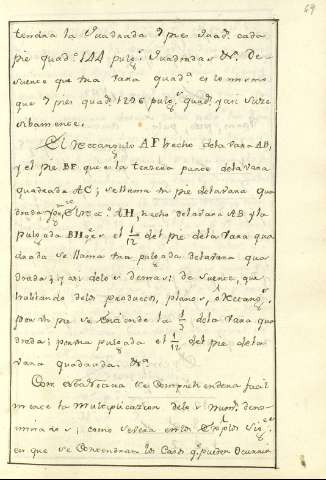 69
tendra la Quadrada 9 pies quad.s cada
pie quad.o 144 pulg.s Quadradas &.a De
suerte que una vara quad.a es lo mismo
que 9 pies quad.s 1296 pulg.s quad.s y asi suce
sibamente.
El Rectangulo AF hecho de la vara AB,
y el pie BF que es la tercera parte de la vara
quadrada AC; se llama un pie de la vara qua
drada, El Rec.o AH, hecho de la vara AB y la
pulgada BH que es el 1/12 del pie de la vara qua
drada se llama una pulgada de la vara qua
drada; y asi de los demas; de suerte, que
hablando de los productos, planos, ó Rectang.s
por un pie se entiende la 1/3 de la vara qua
drada; por una pulgada el 1/12 del pie de la
vara quadrada &.a
Con esta se comprehendera facil
mente la multiplicacion de los num.s deno
minados; como se vera en los Exemplos sig.tes
en que se contendran los casos q.e pueden ocurrir